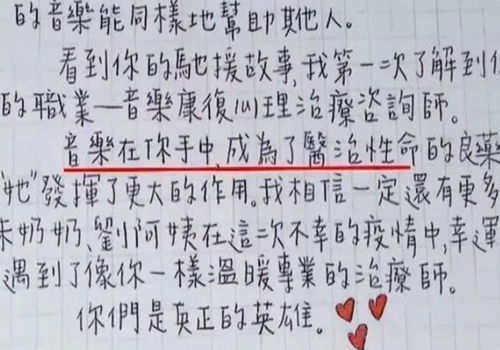 的音樂能同樣地幫助其他人。
看到你的馳援故事,我第一次了解到
的職業—音樂康復心理治療咨詢師。
音樂在你手中,成為了醫治性命的良藥
"她"發揮了更大的作用。我相信一定還有更多
奶奶、劉阿姨在這二次不幸的疫情中,幸運
遇到了像你一樣溫暖專業的治療師。
你們是真正的英雄。